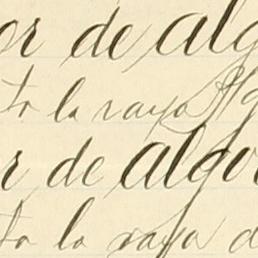 or de alg
to la raya Alg
r de algo
to la raya d